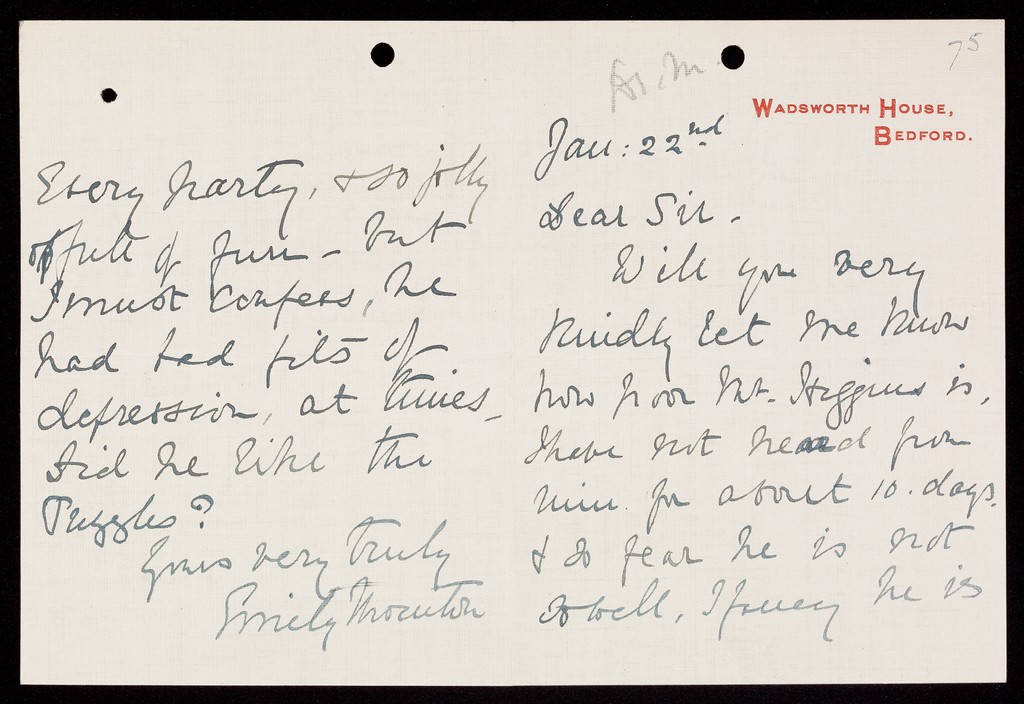 75
WADSWORTH HOUSE,
BEDFORD.
Jan: 22nd
Dear Sir -
Will you very
kindly let me know
how poor Mr. Higgins is,
I have not heard from
him for about 10. days.
& so fear he is not
so well, I fancy he is
Every party, & so jolly
full of fun - but
I must confess, he
had bad fits of
depression, at times -
Did he like the
Puzzles?
Yours very truly
Emily Thornton